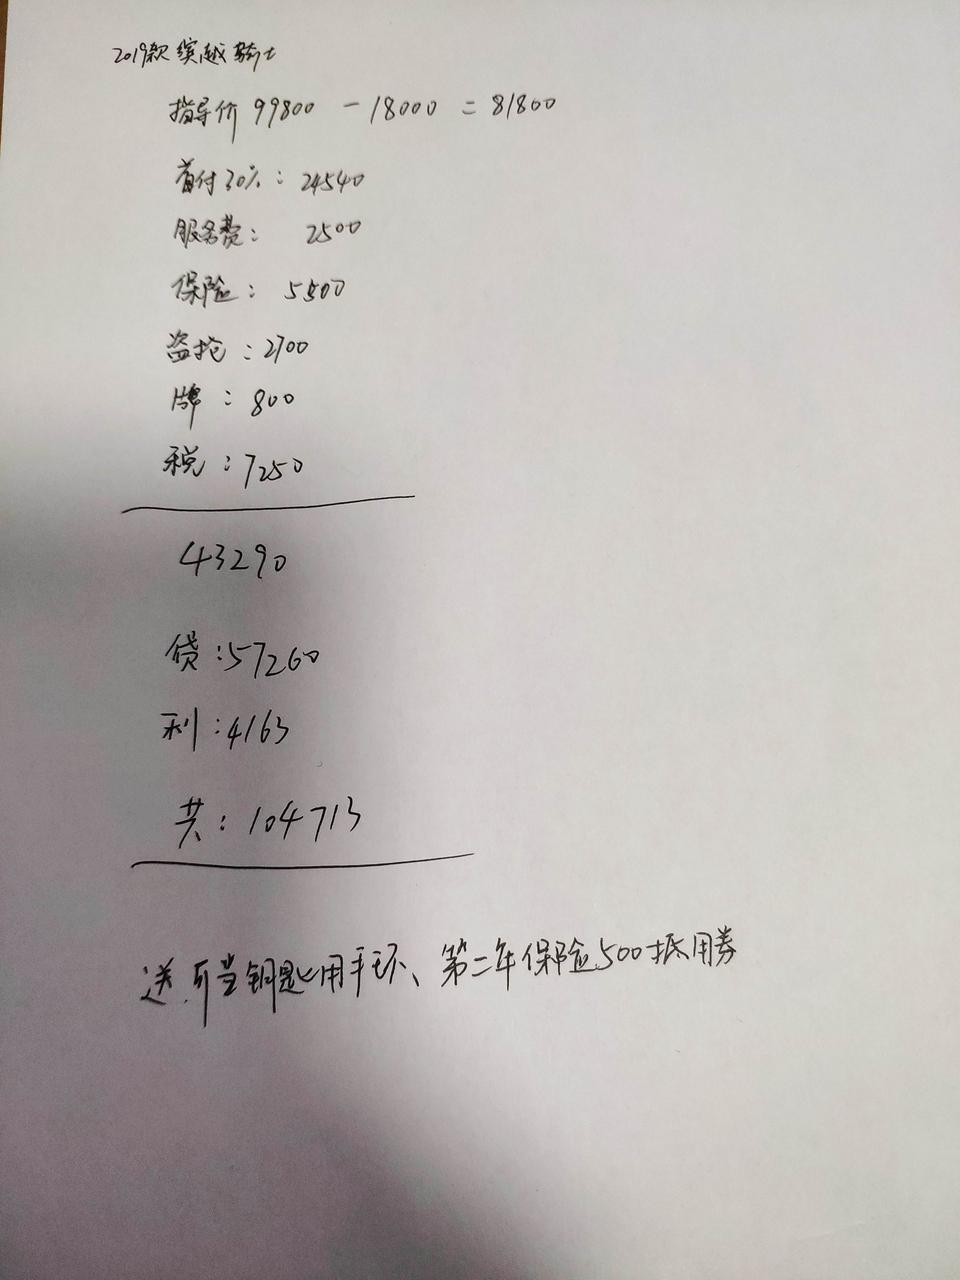 2019款缤越骑士
指导价 99800 - 18000 = 81800
首付30%: 24540
服务费: 2500
保险: 5500
盗抢: 2700
牌: 800
税: 7250
43290
贷: 57260
利: 4163
共: 104713
送.可当钥匙用手环、第二年保险500抵用券